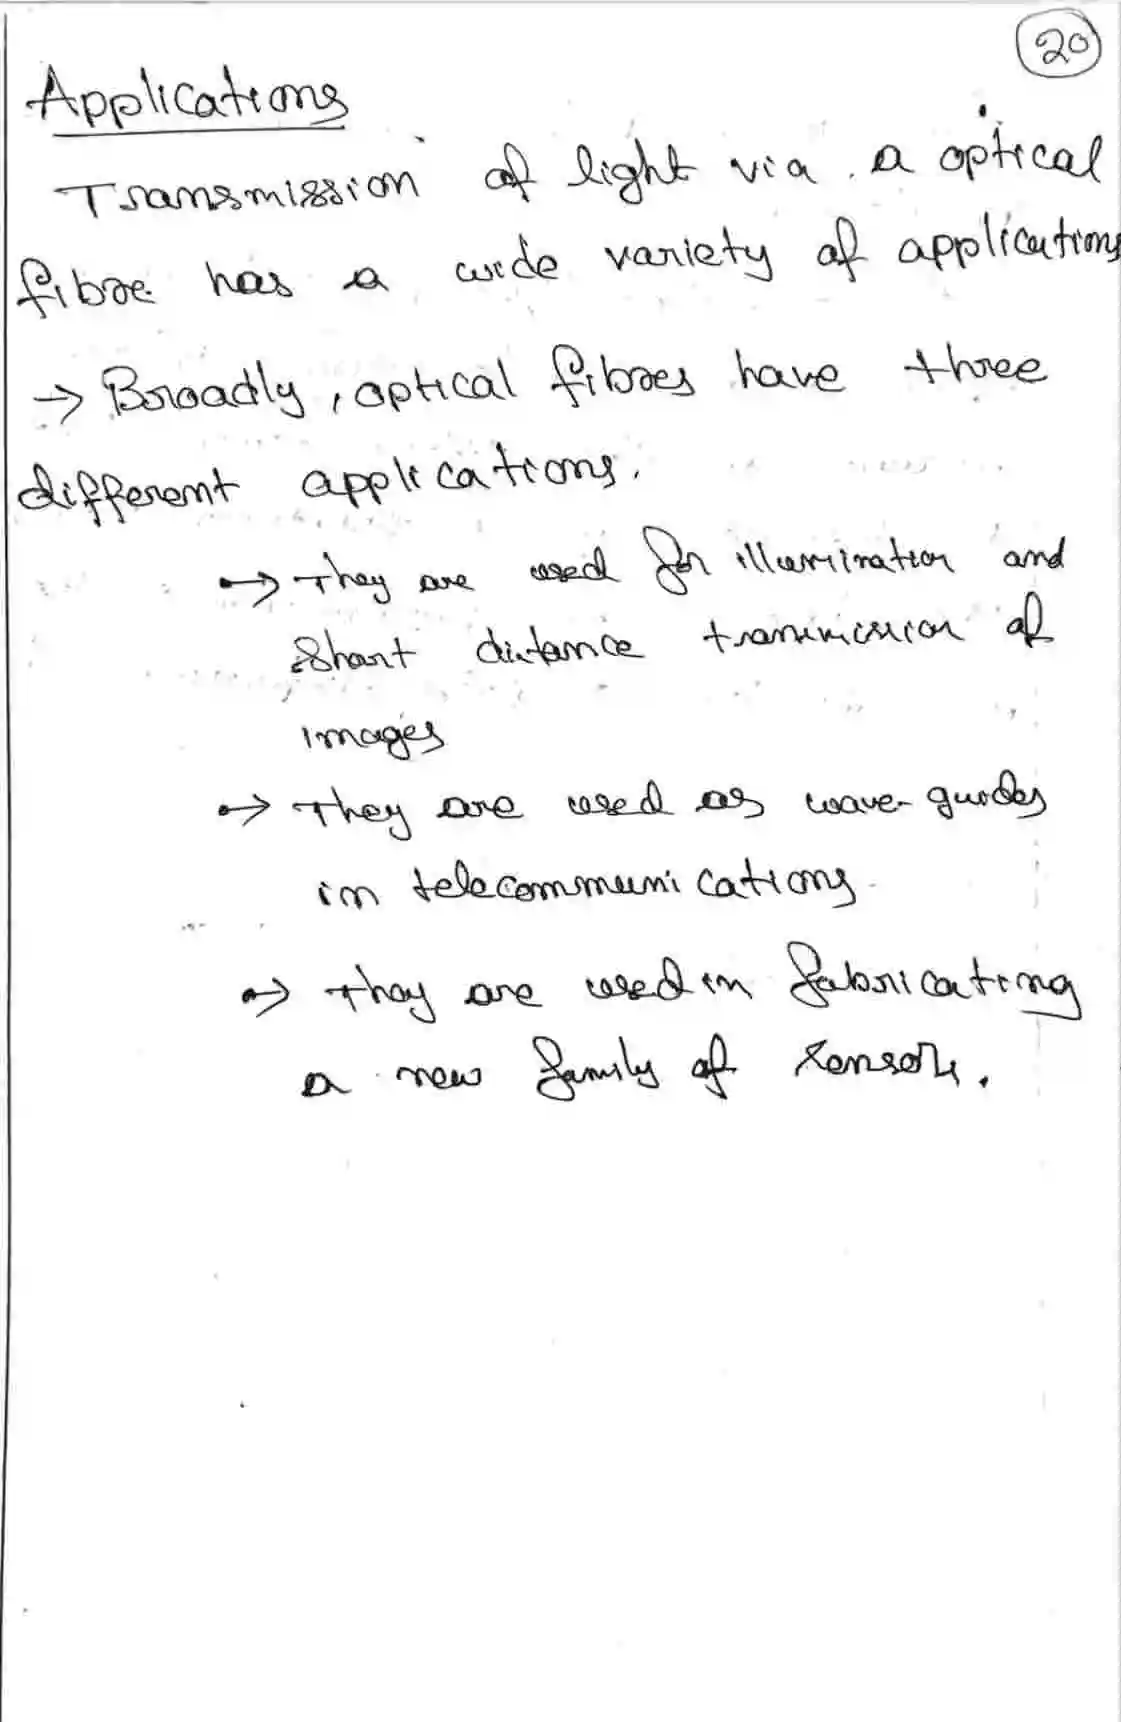 20
Applications
Transmission of light via a optical
fibre has a wide variety of applications
→ Broadly, optical fibres have three
different applications.
→ They are used for illumination and
Short distance transmission of
images
→ They are used as wave-guides
in telecommunications.
→ They are used in fabricating
a new family of sensors.